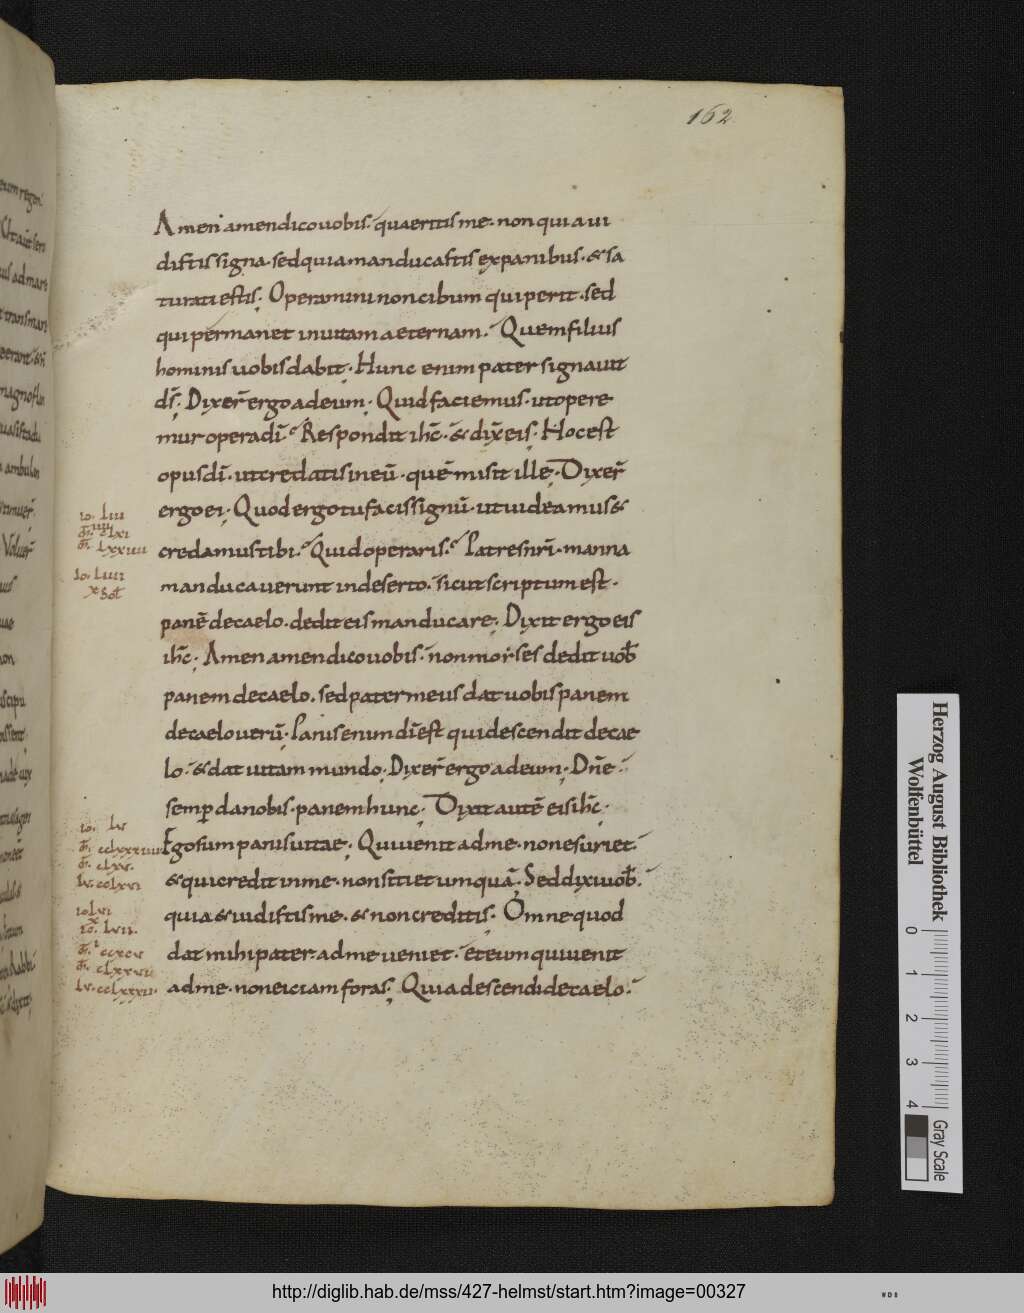 162.
Amen amen dico uobis. quaeritis me. non quia ui
distis signa. sed quia manducastis expanibus. & sa
turati estis; Operamini non cibum qui perit. sed
qui permanet in uitam aeternam. Quem filius
hominis uobis dabit; Hunc enim pater signauit
dš; Dixer̄ ergo ad eum; Quid faciemus. ut opere
mur opera dī. Respondit ihc̄. & dix̄ eis; Hoc est
opus dī. ut credatis in eū. quē misit ille; Dixer̄
ergo ei; Quod ergo tu facis signū. ut uideamus &
credamus tibi. Quid operaris. Patres nr̄i. manna
manducauerunt in deserto. sicut scriptum est.
panē de caelo. dedit eis manducare; Dixit ergo eis
ihc̄; Amen amen dico uobis. non moyses dedit uob̄
panem de caelo. sed pater meus dat uobis panem
de caelo uerū; Panis enim dī est qui descendit de cae
lo. & dat uitam mundo; Dixer̄ ergo ad eum; Dn̄e
semp̄ da nobis. panem hunc; Dixit autē eis ihc̄;
Ego sum panis uitae; Qui uenit ad me. non esuriet.
& qui credit in me. non sitiet umquā; Sed dixi uob̄.
quia & uidistis me. & non creditis; Omne quod
dat mihi pater ad me ueniet. et eum qui uenit
ad me. non eiciam foras; Quia descendi de caelo.
io. liii
io. liiii
x sol
io. lv
lv. cclxvi
io lvi
io. lvii.
Herzog August Bibliothek
Wolfenbüttel
0 1 2 3 4
Gray Scale
http://diglib.hab.de/mss/427-helmst/start.htm?image=00327